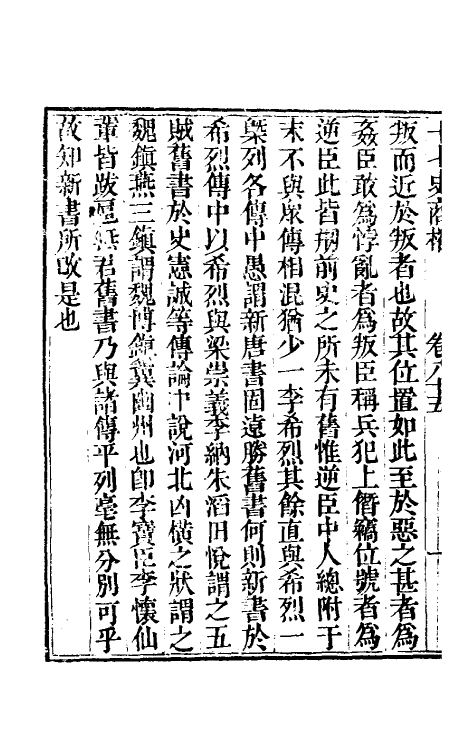 十七史商榷 卷八十五
叛而近於叛者也故其位置如此至於惡之甚者為
姦臣敢為悖亂者為叛臣稱兵犯上僭竊位號者為
逆臣此皆剏前史之所未有舊惟逆臣中人總附于
末不與眾傳相混猶少一李希烈其餘直與希烈一
槩列各傳中愚謂新唐書固遠勝舊書何則新書於
希烈傳中以希烈與梁崇義李納朱滔田悅謂之五
賊舊書於史憲誠等傳論中說河北凶橫之狀謂之
魏鎮燕三鎮謂魏博鎮冀幽州也卽李寶臣李懷仙
輩皆跋扈無君舊書乃與諸傳平列毫無分別可乎
故知新書所改是也